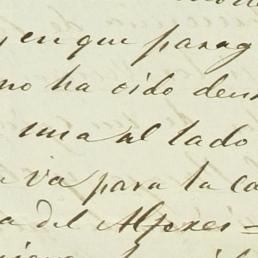 en que parag
no ha oido den
una al lado
va para la ca
a del Alferes